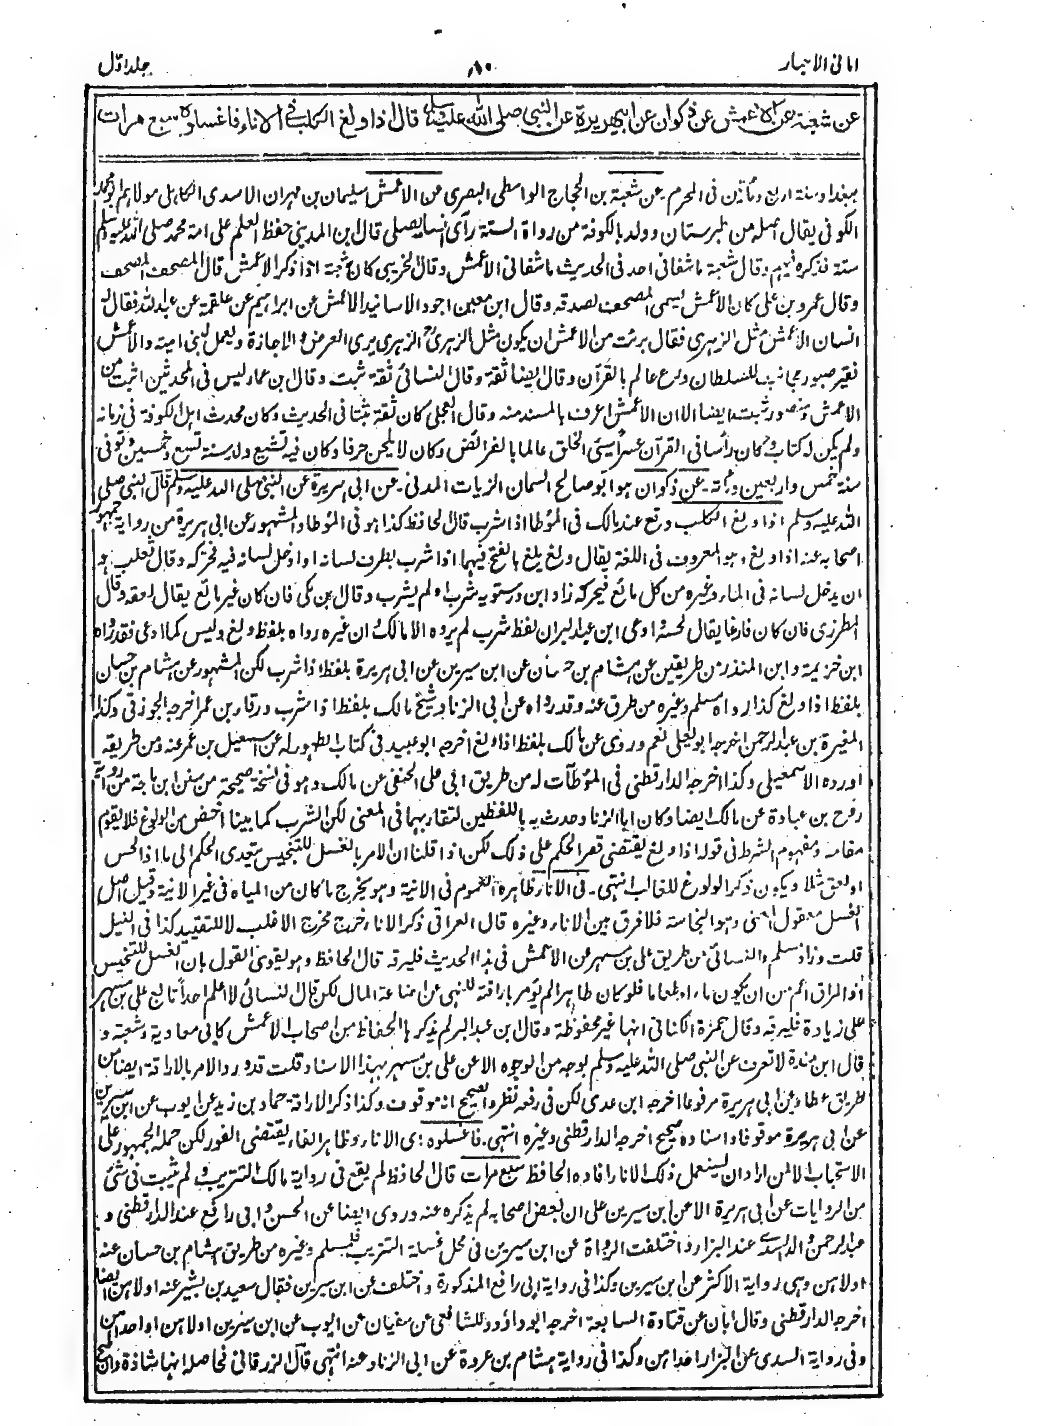 امانی الاحبار
۸۰
جلد اوّل
عن شعبة عن الاعمش عن ذكوان عن ابى هريرة عن النبى صلى الله عليه وسلم قال اذا ولغ الكلب فى الاناء فاغسلوه سبع مرات
ببغداد سنة اربع ومأتين فى الحرم - عن شعبة بن الحجاج الواسطى البصرى عن الاعمش سليمان بن مهران الاسدى الكاهلى مولاهم ابو محمد
الكوفى يقال اصله من طبرستان وولد بالكوفة من رواة الستة رأى انسا يصلى قال ابن المدينى حفظ العلم على امة محمد صلى الله عليه وسلم
ستة فذكره فيهم وقال شعبة ما شفانى احد فى الحديث ما شفانى الاعمش وقال الخريبى كان شعبة اذا ذكر الاعمش قال المصحف المصحف
وقال عمرو بن على كان الاعمش يسمى المصحف لصدقه وقال ابن معين اجود الاسانيد الاعمش عن ابراهيم عن علقمة عن عبد الله فقال له
انسان الاعمش مثل الزهرى فقال برئت من الاعمش ان يكون مثل الزهرى الزهرى يرى العرض والاجازة ويعمل لبنى امية والاعمش
فقير صبور مجانب للسلطان ورع عالم بالقرآن وقال ايضا ثقة وقال النسائى ثقة ثبت وقال بن عمار ليس فى المحدثين اثبت من
الاعمش ومنصور ثبت ايضا الا ان الاعمش اعرف بالمسند منه وقال العجلى كان ثقة ثبتا فى الحديث وكان محدث اهل الكوفة فى زمانه
ولم يكن له كتاب وكان رأسا فى القرآن عسرا سيئ الخلق عالما بالفرائض وكان لا يلحن حرفا وكان فيه تشيع ولد سنة تسع وخمسين وتوفى
سنة خمس واربعين ومائة - عن ذكوان هو ابو صالح السمان الزيات المدنى - عن ابى هريرة عن النبى صلى الله عليه وسلم قال النبى صلى
الله عليه وسلم اذا ولغ الكلب وقع عند مالك فى المؤطا اذا شرب قال الحافظ كذا هو فى المؤطا والمشهور عن ابى هريرة من رواية جمهور
اصحابه عنه اذا ولغ وهو المعروف فى اللغة يقال ولغ يلغ بالفتح فيهما اذا شرب بطرف لسانه او ادخل لسانه فيه فحركه وقال ثعلب هو
ان يدخل لسانه فى الماء وغيره من كل مائع فيحركه زاد ابن درستويه شرب او لم يشرب وقال بن مكى فان كان غير مائع يقال لعقه وقال
المطرزى فان كان فارغا يقال لحسه وادعى ابن عبد البر ان لفظ شرب لم يروه الا مالك وان غيره رواه بلفظ ولغ وليس كما ادعى فقد رواه
ابن خزيمة وابن المنذر من طريقين عن هشام بن حسان عن ابن سيرين عن ابى هريرة بلفظ اذا شرب لكن المشهور عن هشام بن حسان
بلفظ اذا ولغ كذا رواه مسلم وغيره من طرق عنه وقد رواه عن ابى الزناد شيخ مالك بلفظ اذا شرب ورقاء بن عمر اخرجه الجوزقى وكذا
المغيرة بن عبد الرحمن اخرجه ابو يعلى نعم وروى عن مالك بلفظ اذا ولغ اخرجه ابو عبيد فى كتاب الطهور له عن اسمعيل بن عمر عنه ومن طريقه
اورده الاسمعيلى وكذا اخرجه الدارقطنى فى المؤطآت له من طريق ابى على الحنفى عن مالك وهو فى نسخة صحيحة من سنن ابن ماجة من رواية
روح بن عبادة عن مالك ايضا وكان ابا الزناد حدث به باللفظين لتقاربهما فى المعنى لكن الشرب كما بينا اخص من الولوغ فلا يقوم
مقامه ومفهوم الشرط فى قوله اذا ولغ يقتضى قصر الحكم على ذلك لكن اذا قلنا ان الامر بالغسل للتنجيس يتعدى الحكم الى ما اذا لحس
او لعق مثلا ويكون ذكر الولوغ للغالب انتهى - فى الاناء ظاهره العموم فى الآنية وهو يخرج ما كان من المياه فى غير الآنية وقيل اصل
الغسل معقول المعنى وهو النجاسة فلا فرق بين الاناء وغيره قال العراقى ذكر الاناء خرج مخرج الاغلب لا للتقييد كذا فى النيل
قلت وزاد مسلم والنسائى من طريق على بن مسهر عن الاعمش فى هذا الحديث فليرقه قال الحافظ وهو يقوى القول بان الغسل للتنجيس
اذ المراق اعم من ان يكون ماء او طعاما فلو كان طاهرا لم يؤمر باراقته للنهى عن اضاعة المال لكن قال النسائى لا اعلم احدا تابع على بن مسهر
على زيادة فليرقه وقال حمزة الكنانى انها غير محفوظة وقال ابن عبد البر لم يذكرها الحفاظ من اصحاب الاعمش كابى معاوية وشعبة و
قال ابن مندة لا تعرف عن النبى صلى الله عليه وسلم بوجه من الوجوه الا عن على بن مسهر بهذا الاسناد قلت قد ورد الامر بالاراقة ايضا من
طريق عطاء عن ابى هريرة مرفوعا اخرجه ابن عدى لكن فى رفعه نظر والصحيح انه موقوف وكذا ذكر الاراقة حماد بن زيد عن ايوب عن ابن سيرين
عن ابى هريرة موقوفا واسناده صحيح اخرجه الدارقطنى وغيره انتهى - فاغسلوه اى الاناء وظاهر الفاء يقتضى الفور لكن حمله الجمهور على
الاستحباب الا لمن اراد ان يستعمل ذلك الاناء افاده الحافظ سبع مرات قال الحافظ لم يقع فى رواية مالك التتريب ولم يثبت فى شئ
من الروايات عن ابى هريرة الا عن ابن سيرين على ان بعض اصحابه لم يذكره عنه وروى ايضا عن الحسن وابى رافع عند الدارقطنى و
عبد الرحمن والد السدى عند البزار واختلفت الرواة عن ابن سيرين فى محل غسلة التتريب فلمسلم وغيره من طريق هشام بن حسان عنه
اولاهن وهى رواية الاكثر عن ابن سيرين وكذا فى رواية ابى رافع المذكورة واختلف عن ابن سيرين فقال سعيد بن بشير عنه اولاهن ايضا
اخرجه الدارقطنى وقال ابان عن قتادة السابعة اخرجه ابو داؤد وللشافعى عن سفيان عن ايوب عن ابن سيرين اولاهن او احداهن
وفى رواية السدى عن البزار احداهن وكذا فى رواية هشام بن عروة عن ابى الزناد عنه انتهى قال الزرقانى فحاصله انها شاذة وان صح